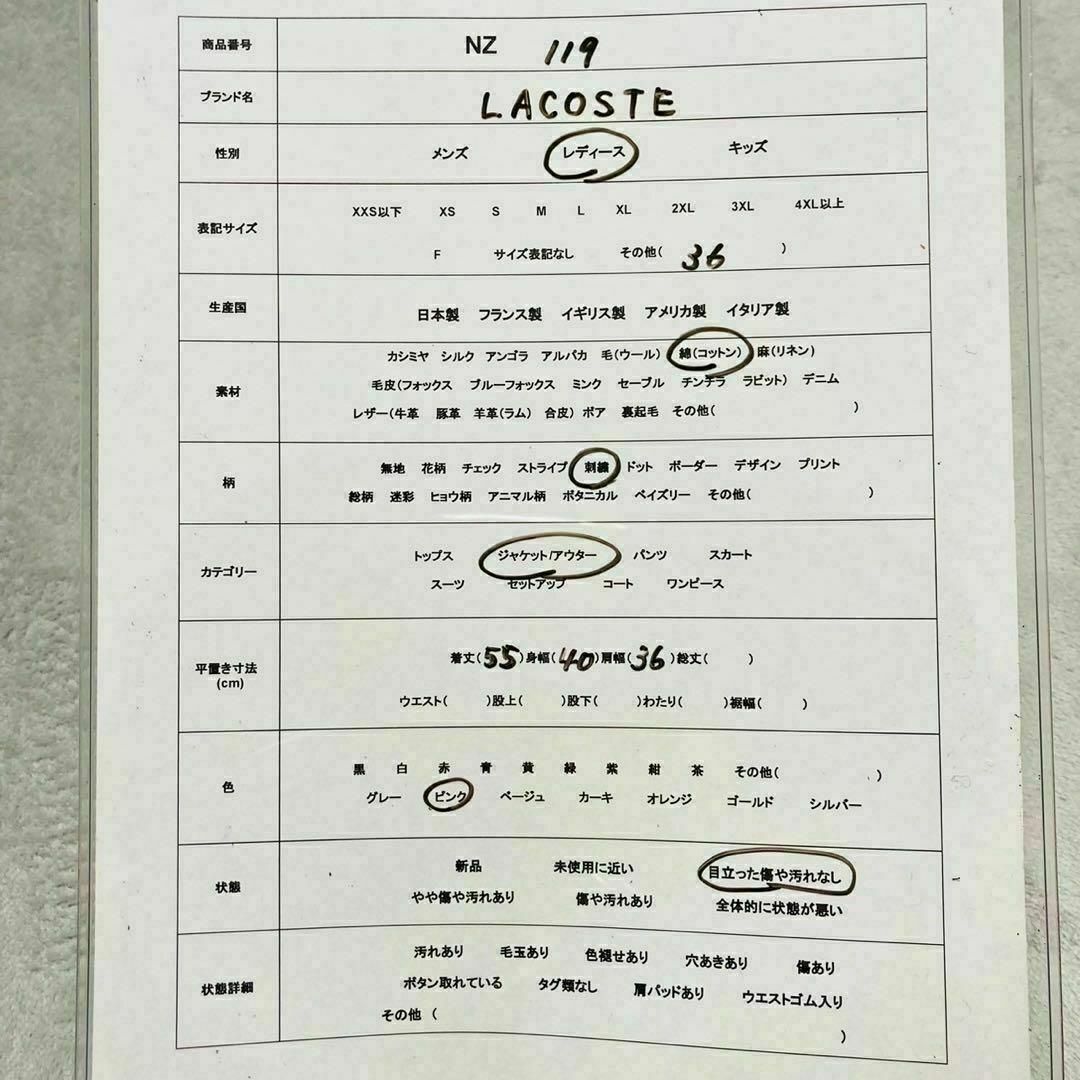 商品番号 NZ 119
ブランド名 LACOSTE
性別 メンズ レディース キッズ
表記サイズ XXS以下 XS S M L XL 2XL 3XL 4XL以上
F サイズ表記なし その他( 36 )
生産国 日本製 フランス製 イギリス製 アメリカ製 イタリア製
素材 カシミヤ シルク アンゴラ アルパカ 毛(ウール) 綿(コットン) 麻(リネン)
毛皮(フォックス ブルーフォックス ミンク セーブル チンチラ ラビット) デニム
レザー(牛革 豚革 羊革(ラム) 合皮) ボア 裏起毛 その他( )
柄 無地 花柄 チェック ストライプ 刺繍 ドット ボーダー デザイン プリント
総柄 迷彩 ヒョウ柄 アニマル柄 ボタニカル ペイズリー その他( )
カテゴリー トップス ジャケット/アウター パンツ スカート
スーツ セットアップ コート ワンピース
平置き寸法 (cm) 着丈( 55 )身幅( 40 )肩幅( 36 )総丈( )
ウエスト( )股上( )股下( )わたり( )裾幅( )
色 黒 白 赤 青 黄 緑 紫 紺 茶 その他( )
グレー ピンク ベージュ カーキ オレンジ ゴールド シルバー
状態 新品 未使用に近い 目立った傷や汚れなし
やや傷や汚れあり 傷や汚れあり 全体的に状態が悪い
状態詳細 汚れあり 毛玉あり 色褪せあり 穴あきあり 傷あり
ボタン取れている タグ類なし 肩パッドあり ウエストゴム入り
その他 ( )